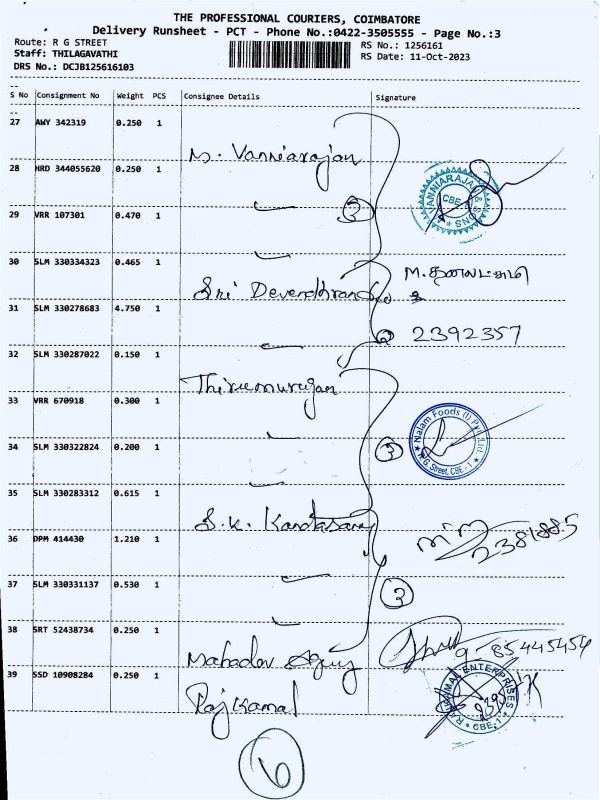 THE PROFESSIONAL COURIERS, COIMBATORE
Delivery Runsheet - PCT - Phone No.:0422-3505555 - Page No.:3
Route: R G STREET
Staff: THILAGAVATHI
DRS No.: DCJB125616103
RS No.: 1256161
RS Date: 11-Oct-2023
S No Consignment No Weight PCS Consignee Details Signature
27 AWY 342319 0.250 1
N. Vanniarajan
28 HRD 344055620 0.250 1
VANNIARAJAN & SONS CBE-1
29 VRR 107301 0.470 1
3
30 SLM 330334323 0.465 1
Sri Devendhran
31 SLM 330278683 4.750 1
2 2392357
32 SLM 330287022 0.150 1
Thirumurugan
33 VRR 670918 0.300 1
Nalam Foods (I) Pvt. Ltd.
R.G. Street, CBE - 1
34 SLM 330322824 0.200 1
3
35 SLM 330283312 0.615 1
S.K. Kandasamy
36 DPM 414430 1.210 1
2381885
37 SLM 330331137 0.530 1
3
38 SRT 52438734 0.250 1
Mahadev
39 SSD 10908284 0.250 1
Rajkamal
ENTERPRISES CBE-1
6